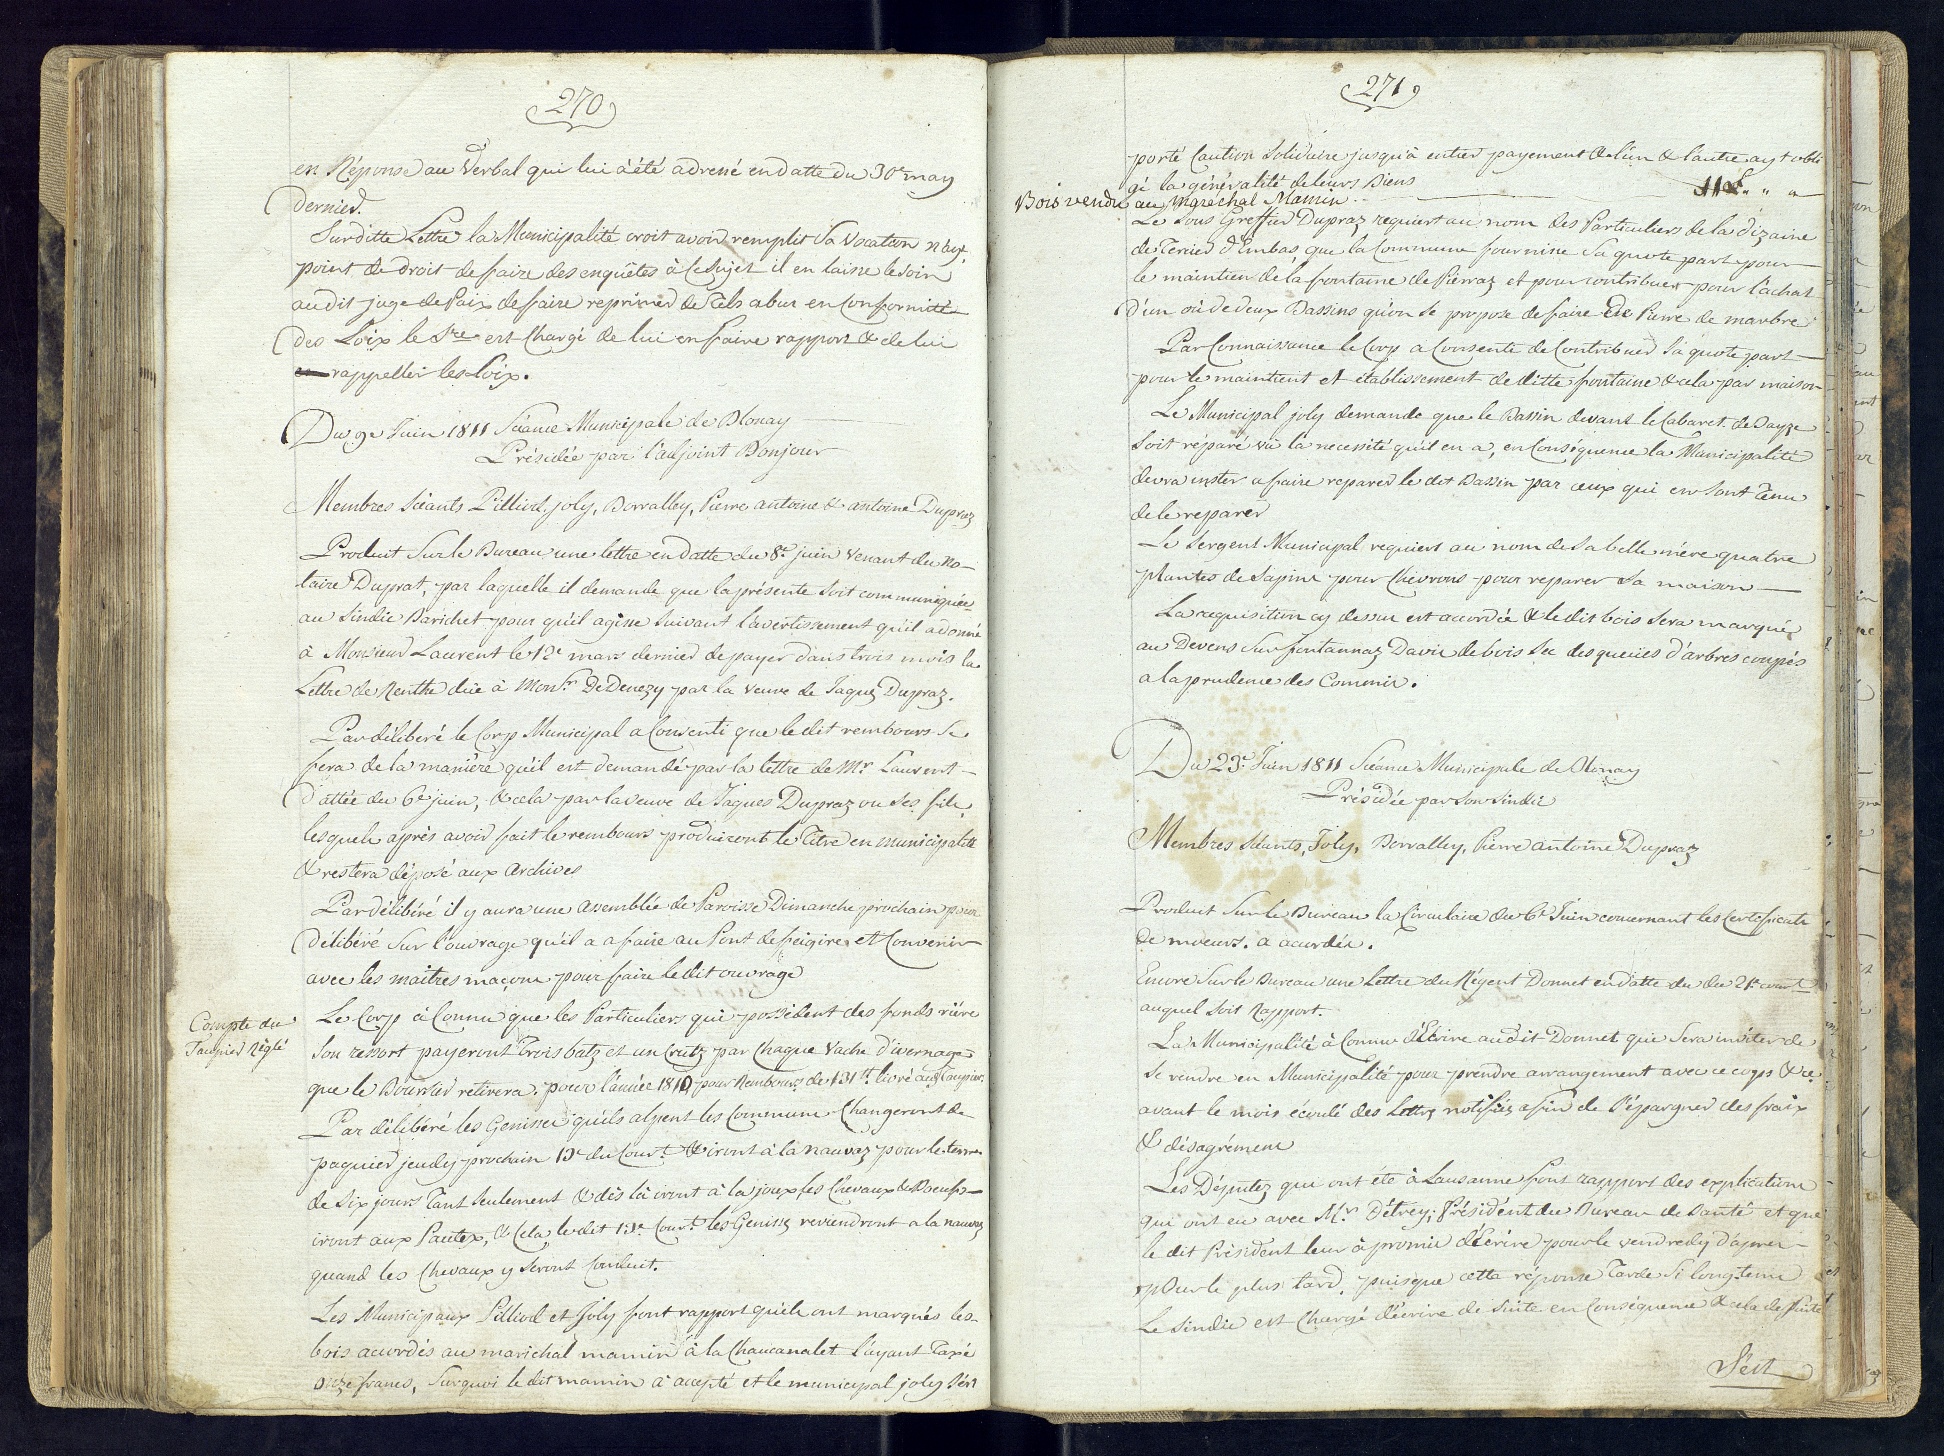 270
en Réponse au Verbal qui lui à été adressé en datte du 30e may
dernier.
Sur ditte Lettre la Municipalité croit avoir remplit sa vocation n'ayt.
point de droit de faire des enquêtes à ce sujet il en laisse le soin
audit juge de Paix de faire reprimer de tels abus en Conformité
des Loix le Sre est Chargé de lui en faire rapport & de lui
rappeller les Loix.
Du 9e Juin 1811 Séance Municipale de Blonay
Présidée par l'adjoint Bonjour
Membres Séants Pilliod, joly, Borralley, Pierre antoine & antoine Dupraz
Produit Sur le Bureau une lettre en datte du 8e. juin venant du No-
taire Duprat, par laquelle il demande que la présente soit communiquée
au Sindic Barichet pour qu'il agisse suivant l'avertissement qu'il a donné
à Monsieur Laurent le 12e mars dernier de payer dans trois mois la
Lettre de Renthe düe à Monsr. De Denezy par la veuve de Jaquez Dupraz.
Par délibéré le Corp Municipal a Consenti que le dit rembours se
fera de la manière qu'il est demandé par la lettre de Mr. Laurent
dattée du 6e juin, & cela par la veuve de Jaques Dupraz ou ses fils,
lesquels après avoir fait le rembours produiront le Titre en municipalité
& restera déposé aux Archives
Par délibéré il y aura une assemblée de Paroisse Dimanche prochain pour
délibéré sur l'ouvrage qu'il a a faire au Pont de feigire et Convenir
avec les maitres maçons pour faire le dit ouvrage
Compte du
Taupier Réglé
Le Corp à Connu que les Particuliers qui possédent des fonds rière
son ressort payeront trois batz et un Crutz par Chaque vache d'ivernage
que le Boursier retirera, pour l'année 1810 pour Rembours de 131 tt. livré au Taupier.
Par délibéré les Genisses qu'ils alpent les Commune Changeront de
paquier jeudy prochain 13e du Court. & iront à la nauvaz pour le terme
de six jours tant seulement & dès là iront à la joux, les Chevaux & Boeufs
iront aux Pautex, & Cela le dit 13e Court. les Genisse reviendront a la nauvaz
quand les Chevaux y seront Conduit.
Les Municipaux Pilliod et Joly font rapport qu'ils ont marqués les
bois acordés au maréchal mamin à la Chaucanalet l'ayant Taxé
onze francs, Surquoi le dit mamin à accepté et le municipal joly s'est
271
porté Caution Solidaire jusqu'à entier payement & l'un & l'autre ayt obli
gé la généralité de leurs Biens 11 £ " " "
Bois vendu au Maréchal Mamin
Le Sous Greffier Dupraz requiert au nom des Particuliers de la dizaine
de Tercier d'Embas, que la Commune fournisse sa quote part pour
le maintien de la fontaine de Pierraz et pour contribuer pour l'achat
d'un où de deux Bassins qu'on se propose de faire de Pierre de marbre
Par Connaissance le Corp a Consenti de Contribuer sa quote part
pour le maintient et établissement de ditte fontaine & cela par maison
Le Municipal joly demande que le Bassin devant le Cabaret de Bayse
soit réparé vû la necessité qu'il en a, en Conséquence la Municipalité
devra inster a faire reparer le dit Bassin par ceux qui en sont Tenu
de le reparer
Le Sergent Municipal requiert au nom de sa belle mère quatre
plantes de Sapins pour Chevrons pour reparer sa maison
La requisition cy dessus est accordée & le dit bois sera marqué
au Devens sur fontannaz Davis de bois sec des queües d'arbres coupés
a la prudence des Commis.
Du 23e. Juin 1811 Séance Municipale de Blonay
Présidée par son Sindic
Membres Séants, Joly, Borralley, Pierre antoine Dupraz
Produit Sur le Bureau la Circulaire du 6e Juin concernant les Certificats
de moeurs. a acordés.
Encore Sur le Bureau une Lettre du Régent Donnet en datte du du 21e court
auquel soit Rapport.
La Municipalité à Connu d'Ecrire audit Donnet qui sera inviter de
se rendre en Municipalité pour prendre arrangement avec ce corps & ce
avant le mois écoulé des Lettres notifiés afin de s'épargner des fraix
& désagrément
Les Députez qui ont été à Lausanne font rapport des explications
qui ont eu avec Mr. Détrey, Président du Bureau de Santé et que
le dit Président leur à promis d'écrire pour le vendredy d'apres
pour le plus tard, puisque cette réponse Tarde si longtems
Le Sindic est Chargé d'écrire de suite en Conséquence & cela de suite